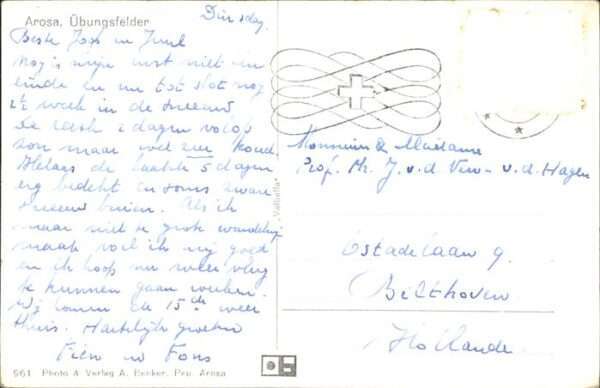 Arosa, Übungsfelder
Dinsdag.
Beste Joop en Juul
Nog is mijn rust niet ten
einde en nu tot slot nog
week in de sneeuw
De eerste 2 dagen volop
zon maar wel zeer koud.
Helaas de laatste 5 dagen
erg bedekt en soms zware
sneeuw buien. Als ik
maar niet te grote wandeling
maak voel ik mij goed
en ik hoop nu weer vlug
te kunnen gaan werken.
Wij komen de 15de weer
thuis. Hartelijke groeten
Fien en Fons
Monsieur & Madame
Prof. Mr. J. v. d. Ven - v. d. Hagen
Estadelaan 9.
Bilthoven
Hollande
"Valbella"
961 Photo & Verlag A. Becker, Pap. Arosa